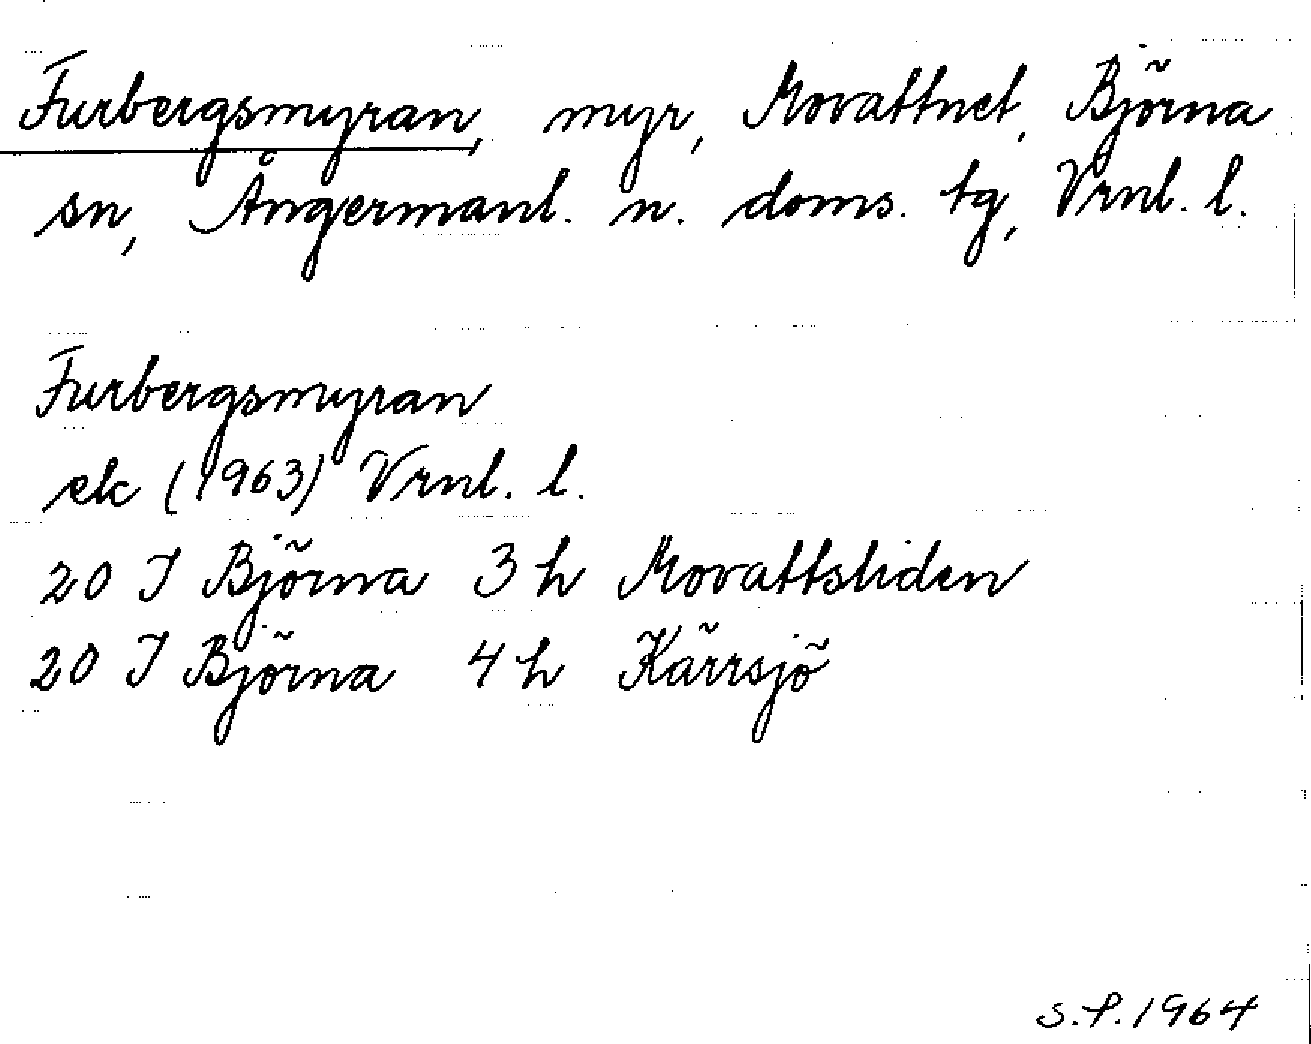 Furbergsmyran, myr, Movattnet, Björna
sn, Ångermanl. n. doms. tg, Vrnl. l.
Furbergsmyran
ek (1963) Vrnl. l.
20 I Björna 3 h Movattsliden
20 I Björna 4 h Kärrsjö
S.P. 1964